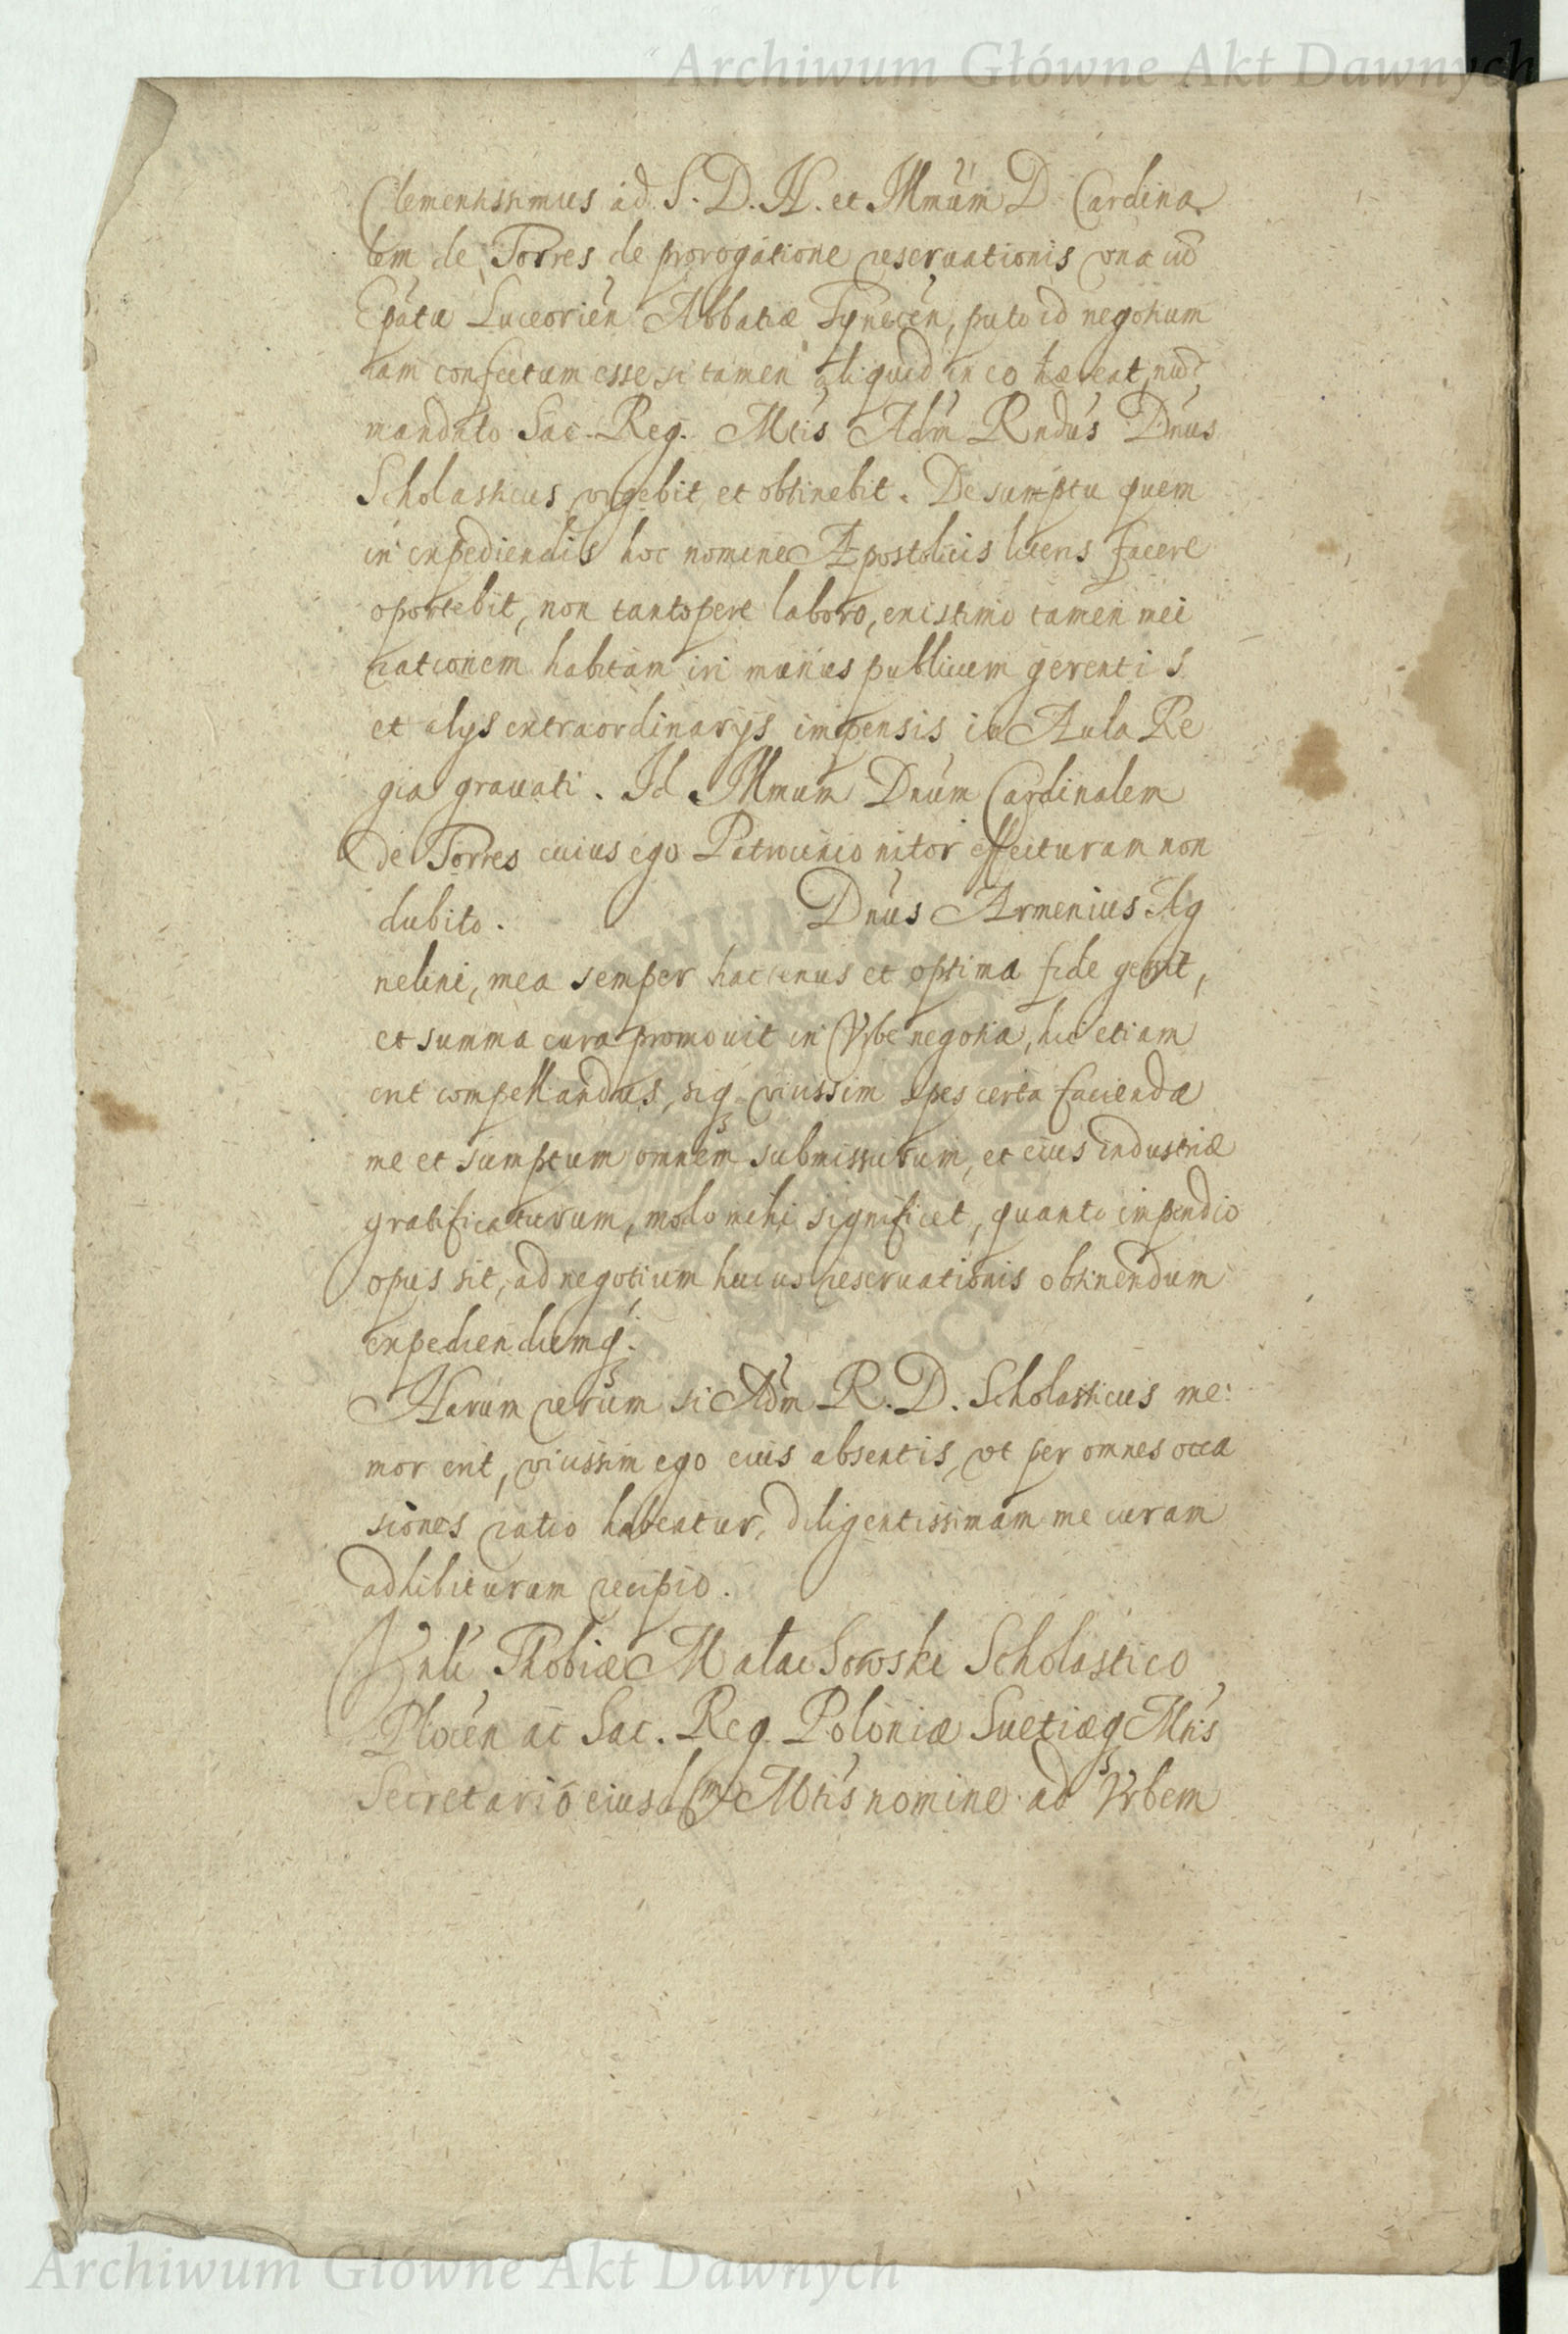 Archiwum Główne Akt Dawnych
Clementissimus ad S. D. N. et Illmum D. Cardina
lem de Torres de prorogatione reseruationis vna cũ
Epatu Luceorien Abbatiæ Tynecen, puto id negotium
iam confectum esse, si tamen aliquid in eo hæreat,
mandato Sac. Reg. Mtis Adm Rndus Dnus
Scholasticus vrgebit, et obtinebit. De sumptu quem
in expediendis hoc nomine Apostolicis literis facere
oportebit, non tantopere laboro, existimo tamen mei
rationem habitam iri munus publicum gerentis
et alijs extraordinarijs impensis in Aula Re
gia grauati. Id Illmum Dnum Cardinalem
de Torres cuius ego Patrocinio nitor effecturum non
dubito. Dnus Armenius Ag
nelini, mea semper hactenus et optima fide gessit,
et summa cura promouit in Vrbe negotia, hic etiam
erit compellandus, siq vicissim spes certa facienda
me et sumptum omnem submissurum, et eius industriæ
gratificaturum, modo mihi significet, quanto impendio
opus sit, ad negotium huius reseruationis obtinendum
expediendumq.
Harum rerum si Adm R. D. Scholasticus me:
mor erit, vicissim ego eius absentis, vt per omnes occa
siones ratio habeatur, diligentissimam me curam
adhibiturum recipio.
Thobiæ Malachowski Scholastico
Plocen ac Sac. Reg. Poloniæ Suetiæq Mtis
Secretario eiusdem Mtis nomine ad Vrbem
Archiwum Główne Akt Dawnych